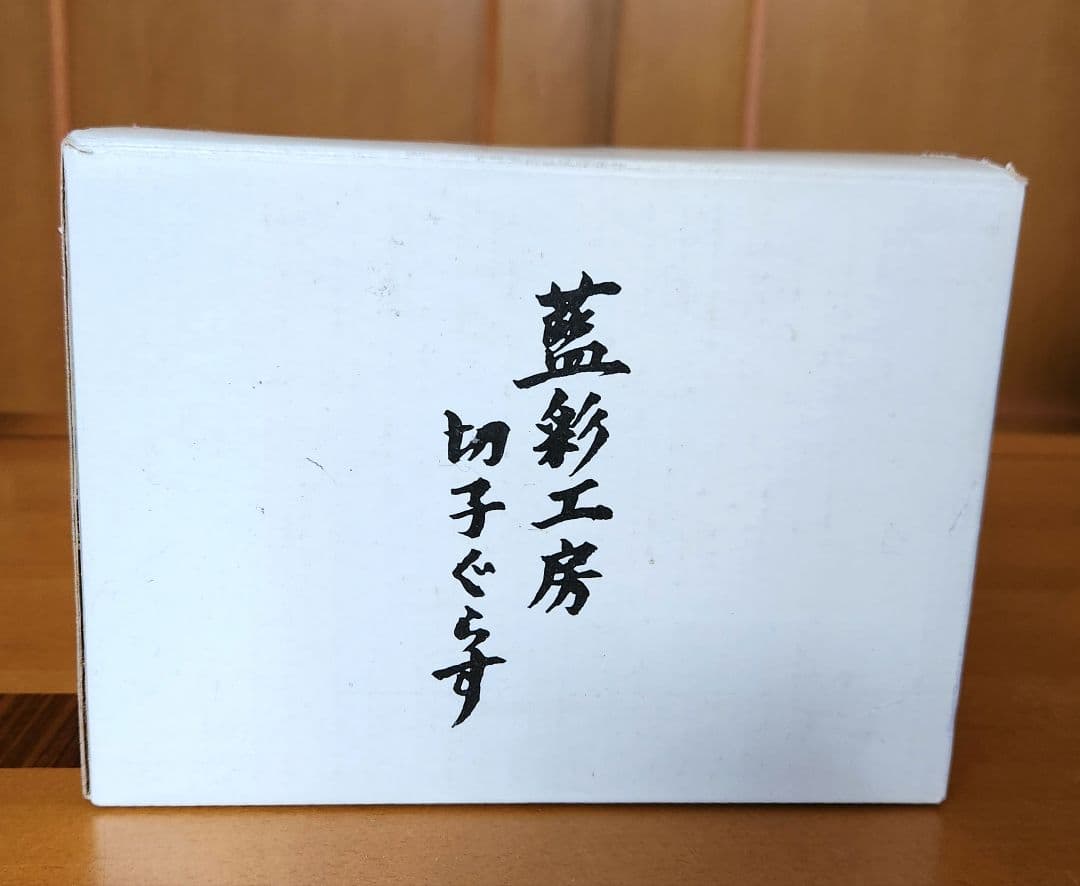 藍彩工房
切子ぐらす